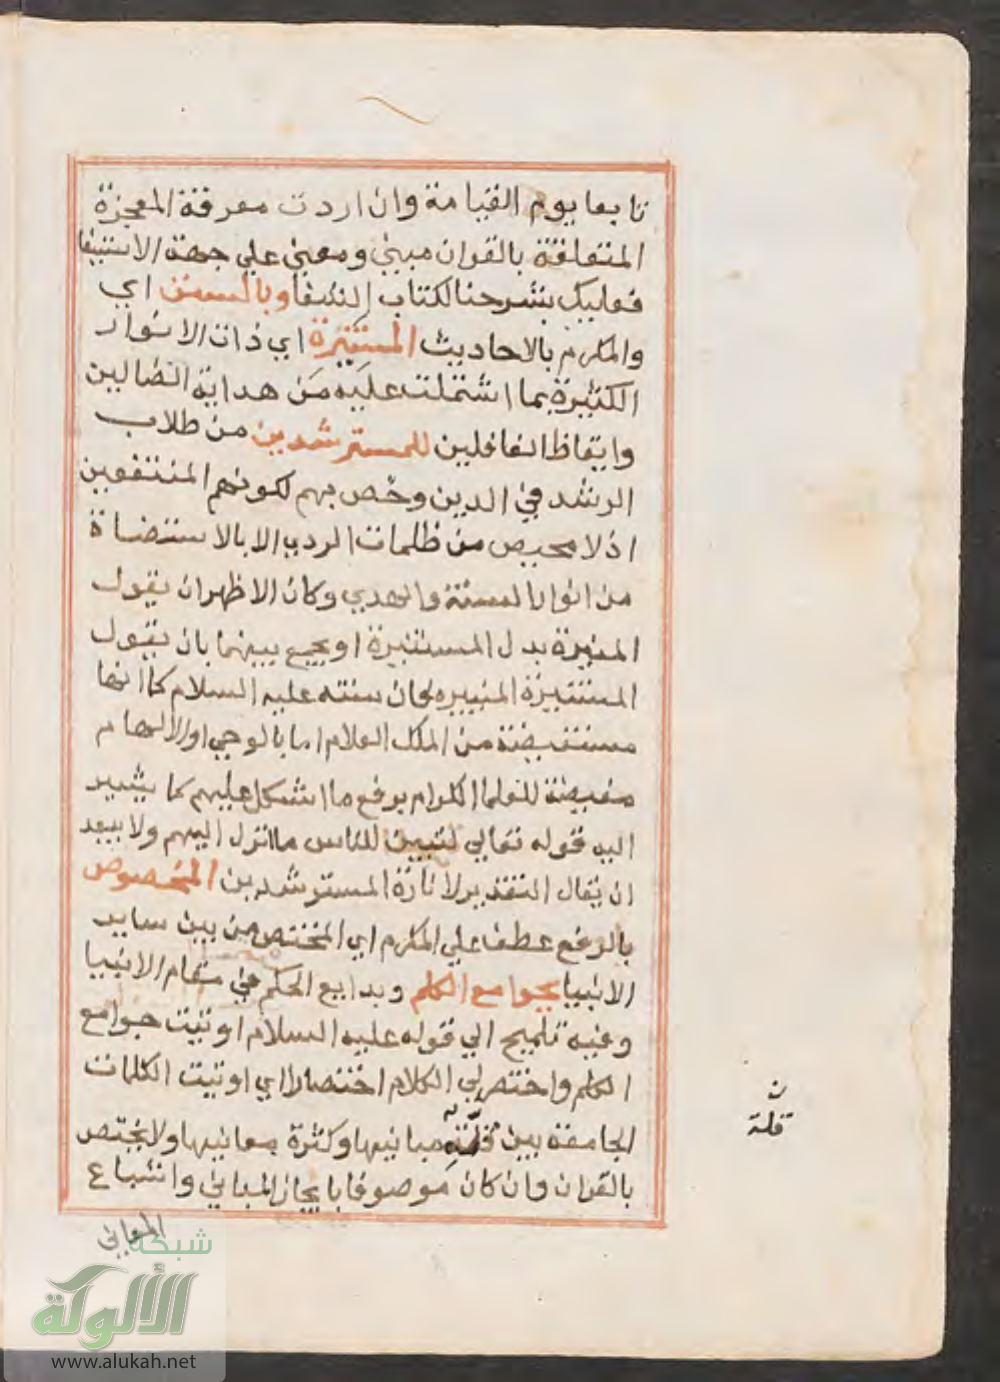 تابعا يوم القيامة وان اردت معرفة المعجزة
المتعلقة بالقران مبنى ومعنى على جهة الاستيفا
فعليك بشرحنا لكتاب الشفا وبالسنن اي
والمكرم بالاحاديث المستنيرة اي ذات الانوار
الكثيرة بما اشتملت عليه من هداية الضالين
وايقاظ الغافلين للمسترشدين من طلاب
الرشد في الدين وخص بهم لكونهم المنتفعين
اذ لا محيص من ظلمات الردى الا بالاستضاة
من انوار السنة والهدي وكان الاظهر ان يقول
المنيرة بدل المستنيرة او يجمع بينهما بان يقول
المستنيرة المنيره فان سنته عليه السلام كما انها
مستفيضة من الملك العلام اما بالوحي او الالهام
مفيضة للعلما الكرام برفع ما اشكل عليهم كما يشير
اليه قوله تعالى لتبين للناس ما نزل اليهم ولا يبعد
ان يقال التقدير لانارة المسترشدين المخصوص
بالرفع عطف على المكرم اي المختص من بين ساير
الانبيا بجوامع الكلم وبدايع الحكم في مقام الانبيا
وفيه تلميح الي قوله عليه السلام اوتيت جوامع
الكلم واختصر لي الكلام اختصارا اي اوتيت الكلمات
الجامعة بين قلة مبانيها وكثرة معانيها ولا يختص
بالقران وان كان موصوفا بايجاز المباني واشباع
المعاني
ن
قلة
شبكة
الألوكة
www.alukah.net